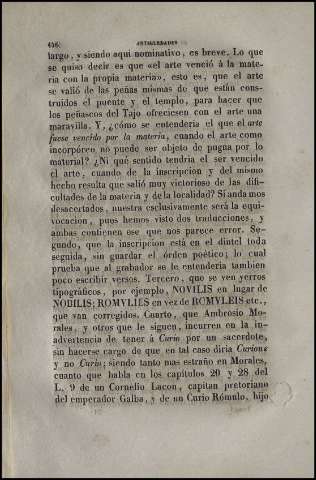 456 ANTIGUEDADES
largo, y siendo aqui nominativo, es breve. Lo que
se quiso decir es que «el arte venció á la mate-
ria con la propia materia», esto es, que el arte
se valió de las peñas mismas de que están cons-
truidos el puente y el templo, para hacer que
los peñascos del Tajo ofreciesen con el arte una
maravilla. Y, ¿cómo se entenderia el que el arte
fuese vencido por la materia, cuando el arte como
incorpóreo no puede ser objeto de pugna por lo
material? ¿Ni qué sentido tendria el ser vencido
el arte, cuando de la inscripcion y del mismo
hecho resulta que salió muy victorioso de las difi-
cultades de la materia y de la localidad? Si anda mos
desacertados, nuestra esclusivamente será la equi-
vocacion, pues hemos visto dos traducciones, y
ambas contienen ese que nos parece error. Se-
gundo, que la inscripcion está en el dintel toda
seguida, sin guardar el órden poético; lo cual
prueba que al grabador se le entenderia tambien
poco escribir versos. Tercero, que se ven yerros
tipográficos, por ejemplo, NOVILIS en lugar de
NOBILIS; ROMVLIES en vez de ROMVLEIS etc.,
que van corregidos. Cuarto, que Ambrosio Mo-
rales, y otros que le siguen, incurren en la in-
advertencia de tener á Curio por un sacerdote,
sin hacerse cargo de que en tal caso diria Curione
y no Curio; siendo tanto mas estraño en Morales,
cuanto que habla en los capítulos 20 y 28 del
L. 9 de un Cornelio Lacon, capitan pretoriano
del emperador Galba, y de un Curio Rómulo, hijo